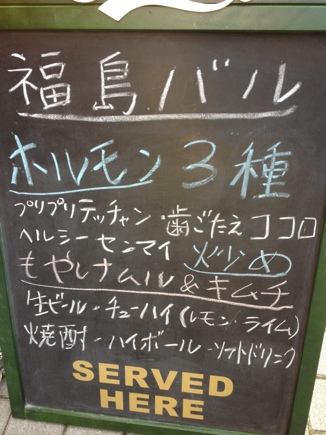 福島バル
ホルモン3種
プリプリテッチャン・歯ごたえココロ
ヘルシーセンマイ 炒め
もやしナムル&キムチ
生ビール・チューハイ(レモン・ライム)
焼酎・ハイボール・ソフトドリンク
SERVED
HERE